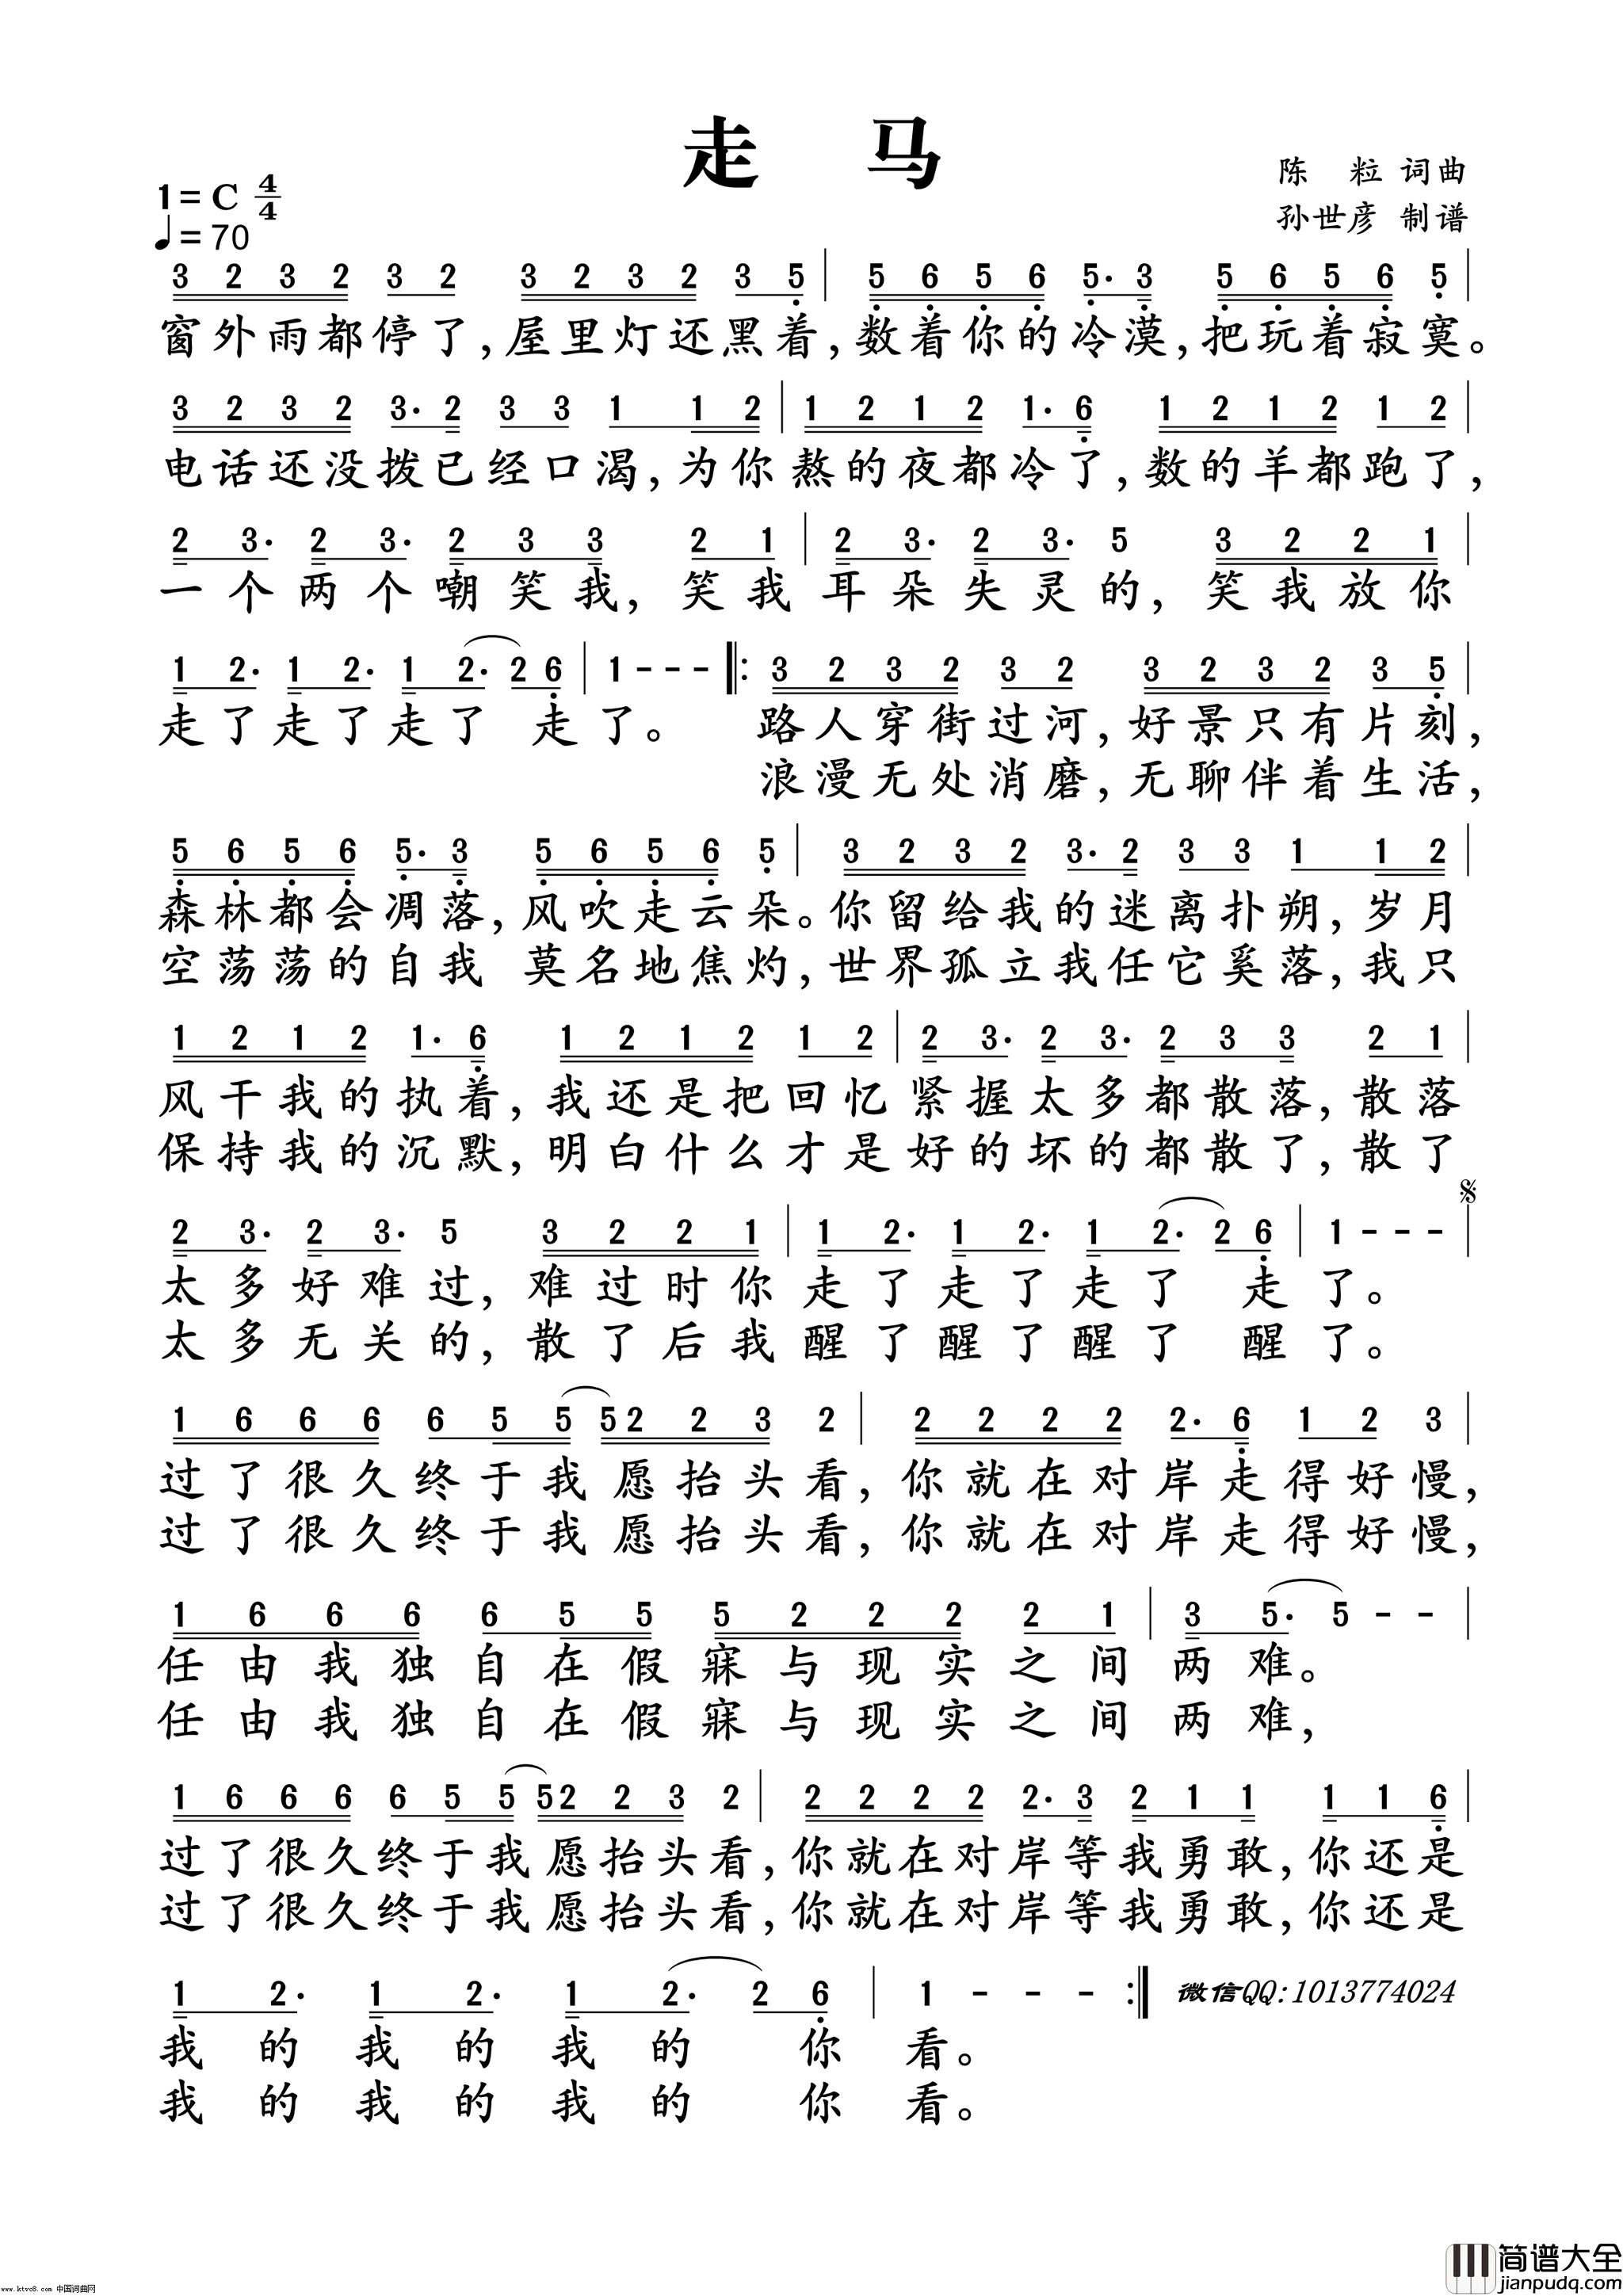 走 马
陈 粒 词曲
1=C 4/4
孙世彦 制谱
♩=70
3 2 3 2 3 2 3 2 3 2 3 5 | 5 6 5 6 5· 3 5 6 5 6 5 |
窗外雨都停了,屋里灯还黑着,数着你的冷漠,把玩着寂寞。
3 2 3 2 3· 2 3 3 1 1 2 | 1 2 1 2 1· 6 1 2 1 2 1 2 |
电话还没拨已经口渴,为你熬的夜都冷了,数的羊都跑了,
2 3· 2 3· 2 3 3 2 1 | 2 3· 2 3· 5 3 2 2 1 |
一个两个嘲笑我,笑我耳朵失灵的,笑我放你
1 2· 1 2· 1 2· 2 6 | 1 - - - |: 3 2 3 2 3 2 3 2 3 2 3 5 |
走了走了走了 走了。 路人穿街过河,好景只有片刻,
浪漫无处消磨,无聊伴着生活,
5 6 5 6 5· 3 5 6 5 6 5 | 3 2 3 2 3· 2 3 3 1 1 2 |
森林都会凋落,风吹走云朵。你留给我的迷离扑朔,岁月
空荡荡的自我 莫名地焦灼,世界孤立我任它奚落,我只
1 2 1 2 1· 6 1 2 1 2 1 2 | 2 3· 2 3· 2 3 3 2 1 |
风干我的执着,我还是把回忆紧握太多都散落,散落
保持我的沉默,明白什么才是好的坏的都散了,散了
𝄋
2 3· 2 3· 5 3 2 2 1 | 1 2· 1 2· 1 2· 2 6 | 1 - - - |
太多好难过,难过时你走了走了走了 走了。
太多无关的,散了后我醒了醒了醒了 醒了。
1 6 6 6 6 5 5 5 2 2 3 2 | 2 2 2 2 2· 6 1 2 3 |
过了很久终于我愿抬头看,你就在对岸走得好慢,
过了很久终于我愿抬头看,你就在对岸走得好慢,
1 6 6 6 6 5 5 5 2 2 2 2 1 | 3 5· 5 - - |
任由我独自在假寐与现实之间两难。
任由我独自在假寐与现实之间两难,
1 6 6 6 6 5 5 5 2 2 3 2 | 2 2 2 2 2· 3 2 1 1 1 1 6 |
过了很久终于我愿抬头看,你就在对岸等我勇敢,你还是
过了很久终于我愿抬头看,你就在对岸等我勇敢,你还是
1 2· 1 2· 1 2· 2 6 | 1 - - - :| 微信QQ:1013774024
我的我的我的 你看。
我的我的我的 你看。
简谱大全
jianpudq.com
www.ktvc8.com 中国词曲网